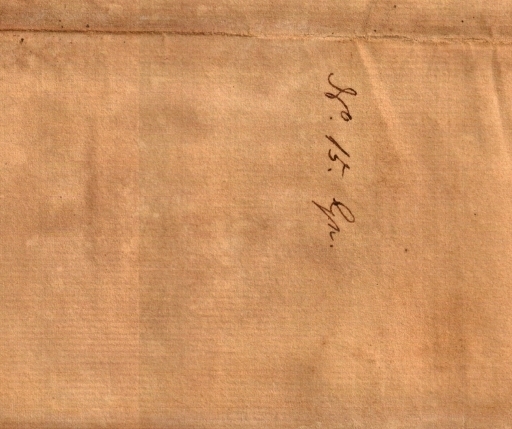 No. 15. Gr.